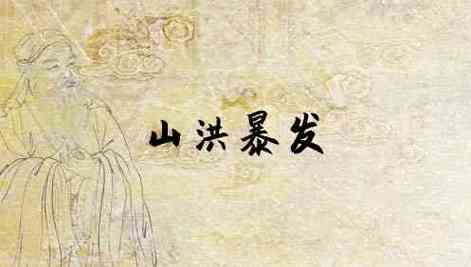 山洪暴发